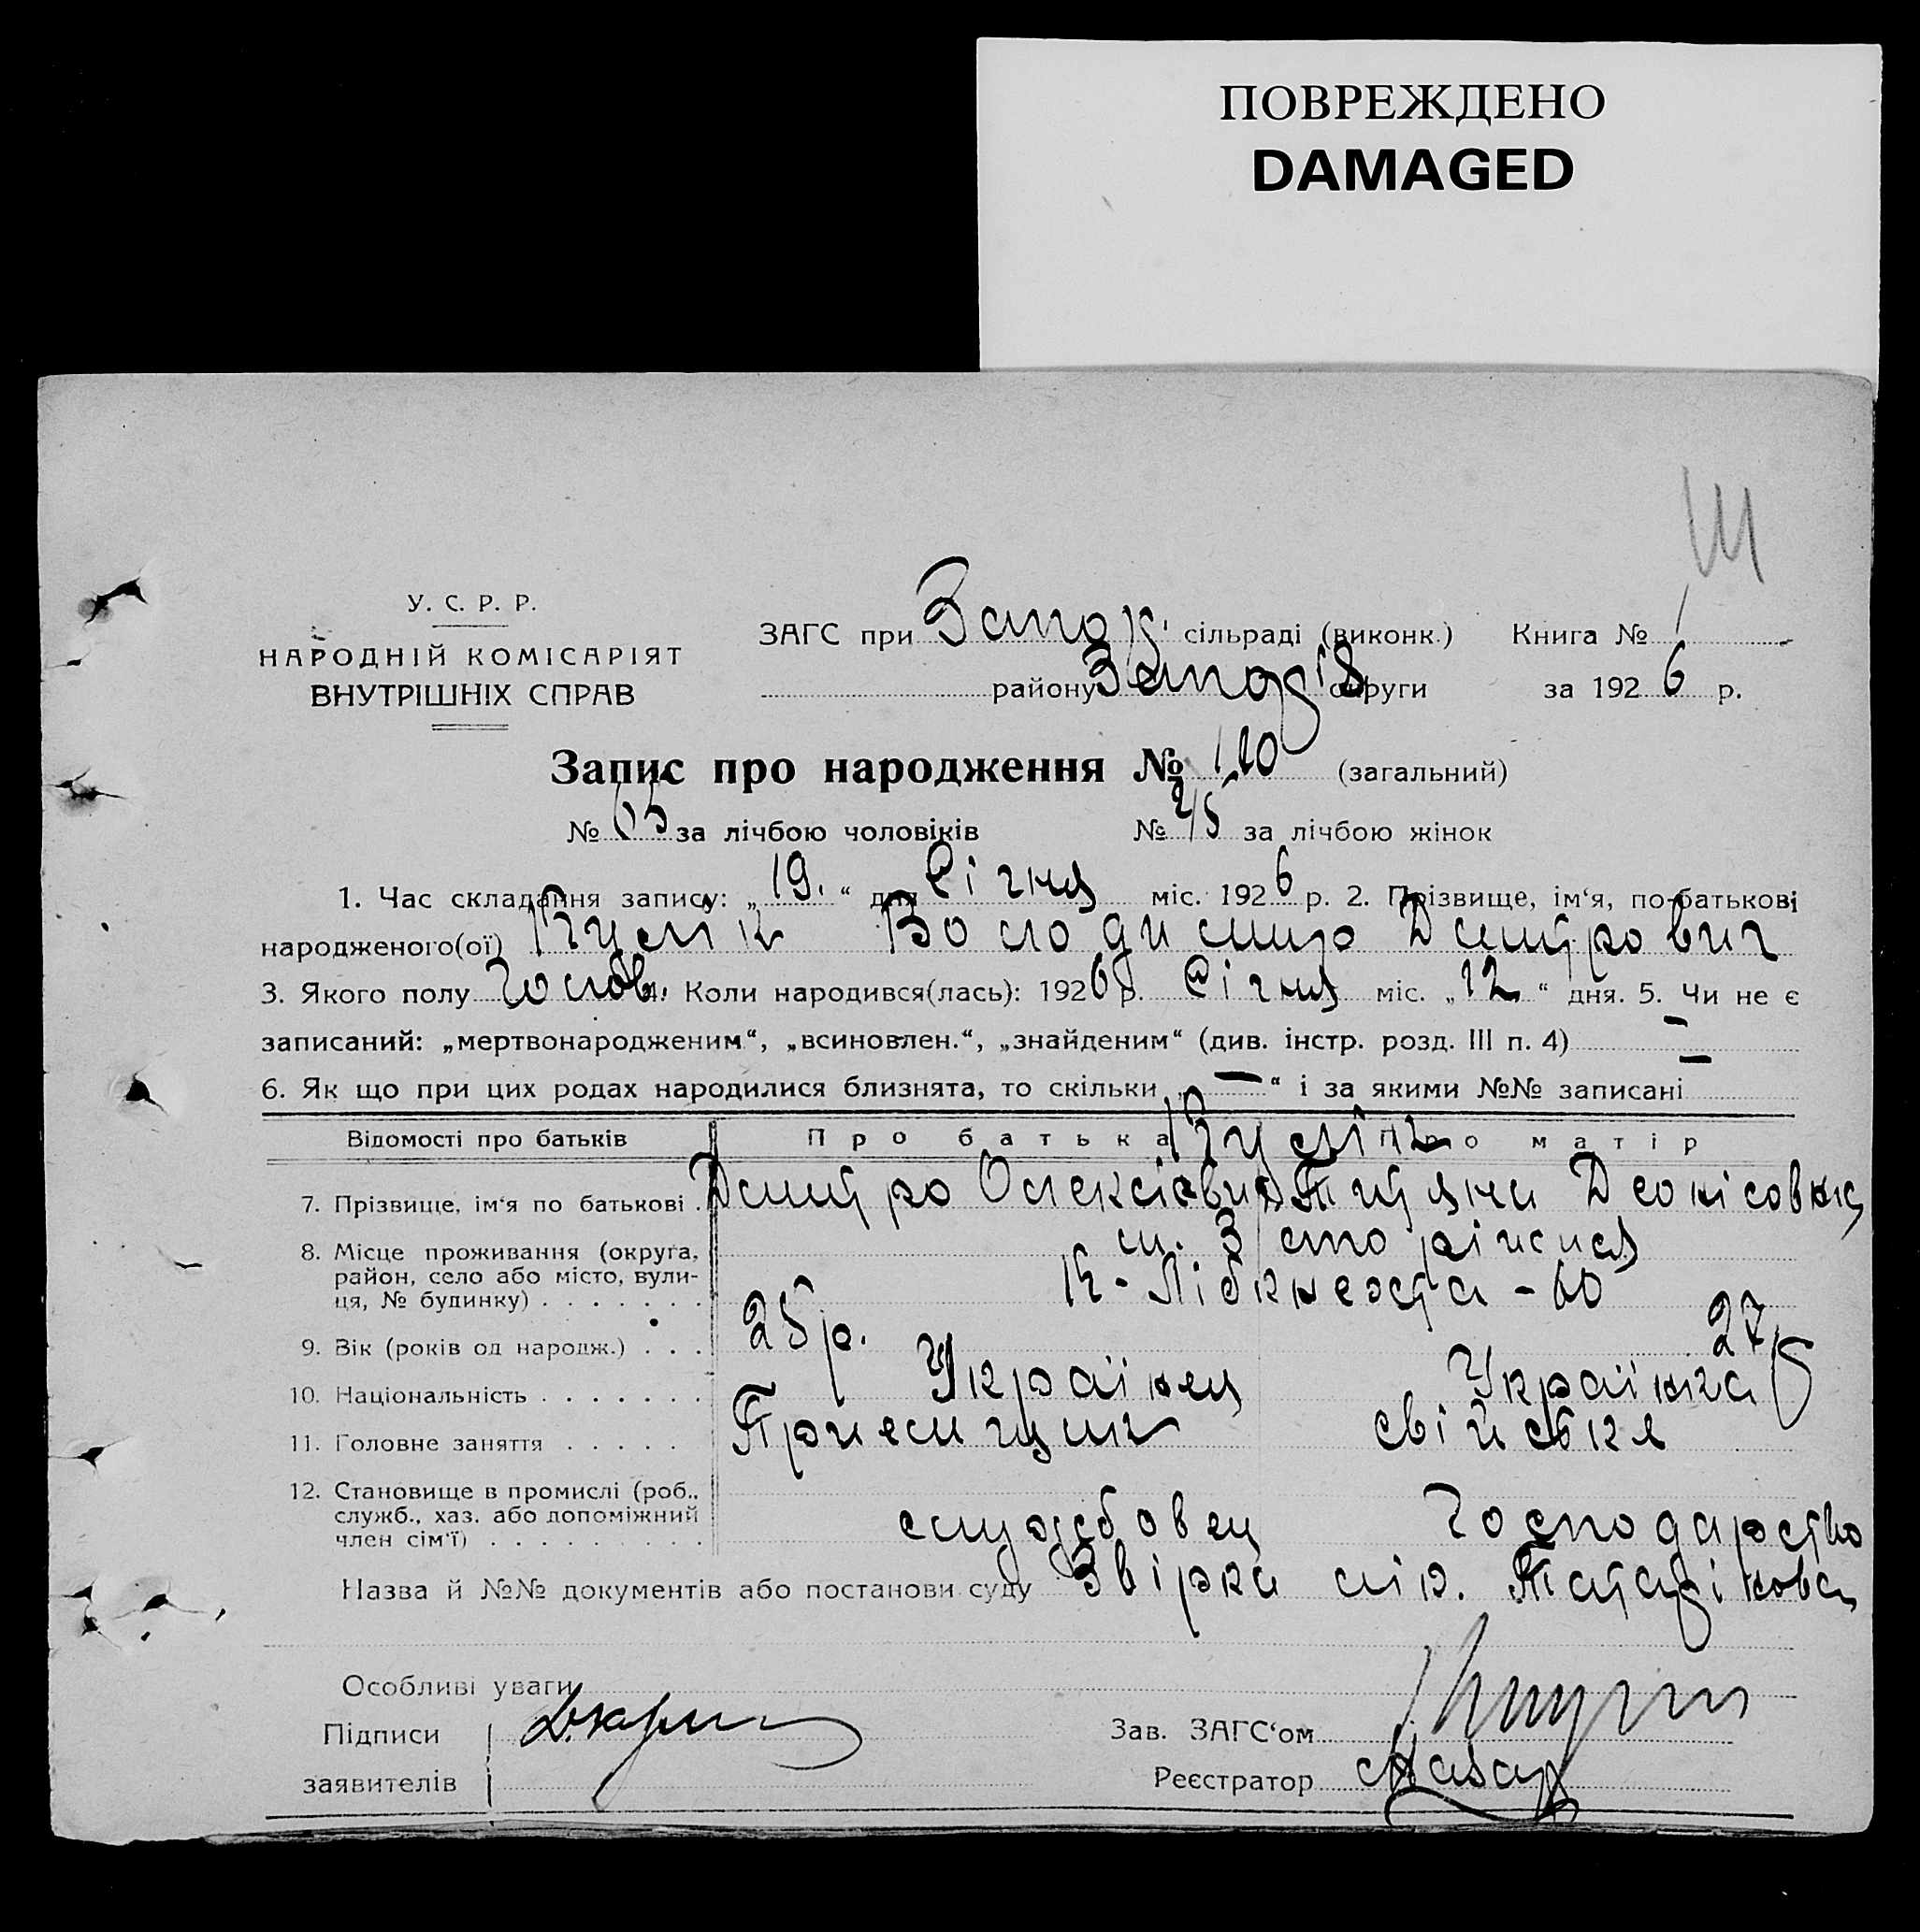 ПОВРЕЖДЕНО
DAMAGED
У. С. Р. Р.
НАРОДНІЙ КОМІСАРІЯТ
ВНУТРІШНІХ СПРАВ
ЗАГС при Запор. сільраді (виконк.) Книга № 1
району округи за 1926 р.
Запис про народження № 110 (загальний)
№ 65 за лічбою чоловіків № 45 за лічбою жінок
1. Час складання запису: „19.“ дня Січня міс. 1926 р. 2. Прізвище, ім‘я, по-батькові
народженого(ої) Кулік Володимир Дмитрович
3. Якого полу Чолов. 4. Коли народився(лась): 1926 р. Січня міс. „12“ дня. 5. Чи не є
записаний: „мертвонародженим“, „всиновлен.“, „знайденим“ (див. інстр. розд. III п. 4) —
6. Як що при цих родах народилися близнята, то скільки „—“ і за якими №№ записані —
Відомості про батьків Про батька Про матір
Кулік
7. Прізвище, ім‘я по батькові . Дмитро Олексієвич Титяна Денісовна
8. Місце проживання (округа, район, село або місто, вулиця, № будинку) . . . . . . . м. Запоріжжя
К-Лібкнехта - 60
9. Вік (років од народж.) . . . 25 р. 27 р
10. Національність . . . . . . . Українец Українка
11. Головне заняття . . . . . Приемщик свійське
12. Становище в промислі (роб., служб., хаз. або допоміжний член сім‘ї) . . . . . . . . . службовец Господарство
Назва й №№ документів або постанови суду Звірка лік.
Особливі уваги
Підписи
заявителів
Зав. ЗАГС‘ом
Реєстратор